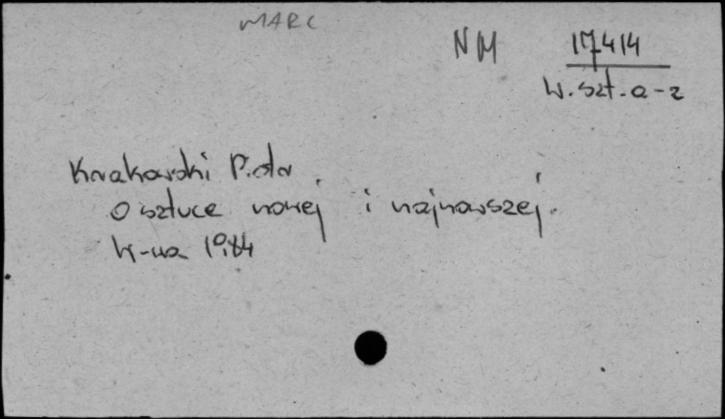 MARC
NM 17414
W. szt. a-z
Krakowski Piotr
O sztuce nowej i najnowszej.
W-wa 1984